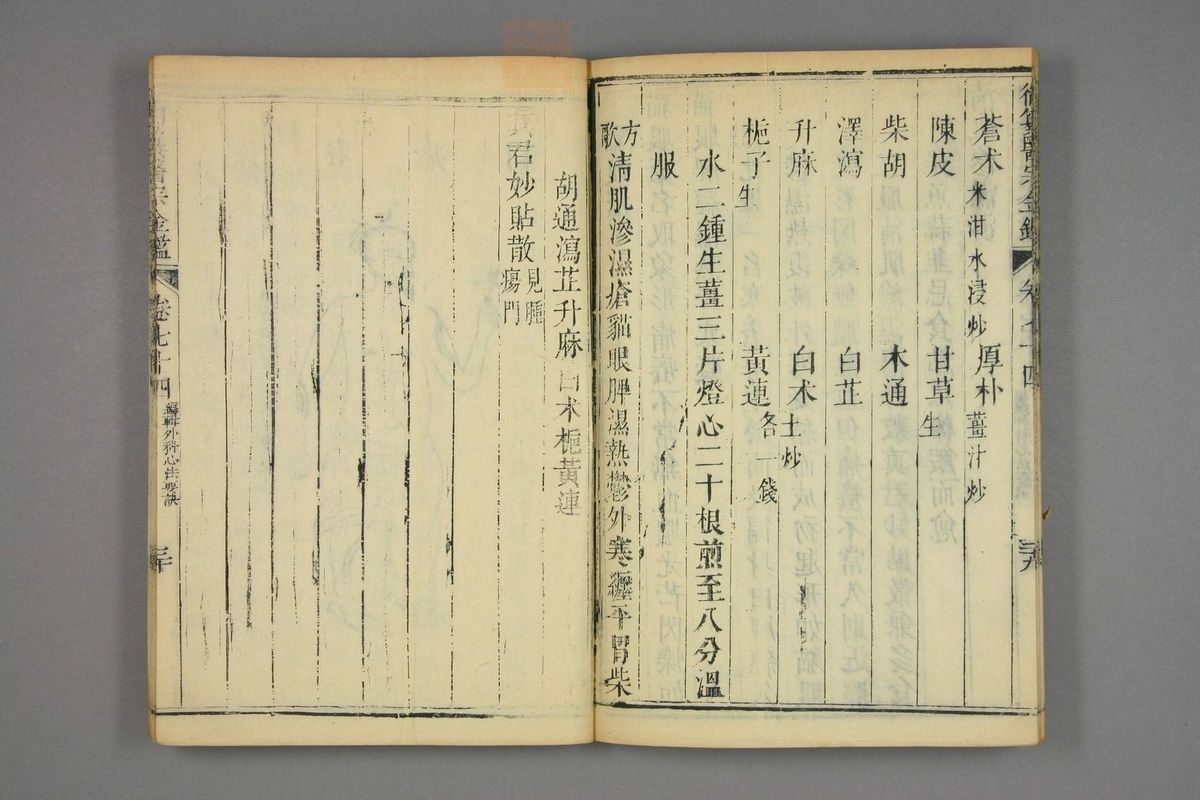 蒼术米泔水浸炒 厚朴薑汁炒
陳皮 甘草生
柴胡 木通
澤瀉 白芷
升麻 白术土炒
梔子生 黃連各一錢
水二鍾生薑三片燈心二十根煎至八分溫
服
方歌 清肌滲濕瘡貓眼脾濕熱鬱外寒纏平胃柴
胡通瀉芷升麻白术梔黃連
真君妙貼散見腫瘍門
卷七十四
編輯外科心法要訣
三十